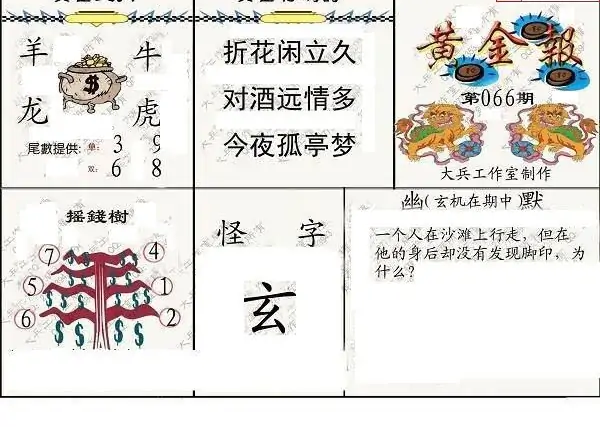 羊 牛
龙 虎
$
尾數提供: 单: 3 9
双: 6 8
折花闲立久
对酒远情多
今夜孤亭梦
黄金報
第066期
大兵工作室制作
摇錢樹
⑦ ④
⑤ ①
⑥ ②
怪 字
玄
幽(玄机在期中)默
一个人在沙滩上行走，但在
他的身后却没有发现脚印，为
什么?